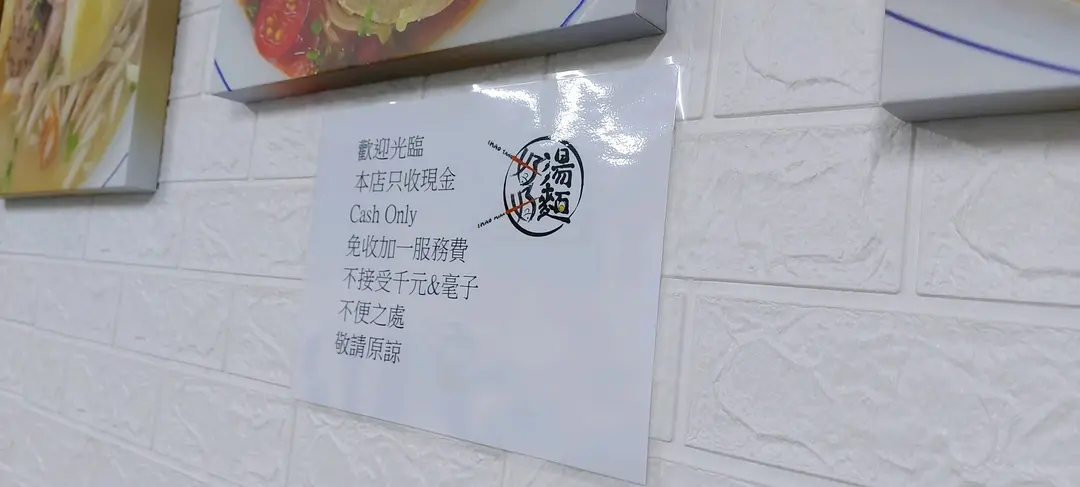 歡迎光臨
本店只收現金
Cash Only
免收加一服務費
不接受千元&毫子
不便之處
敬請原諒
好湯
好麵